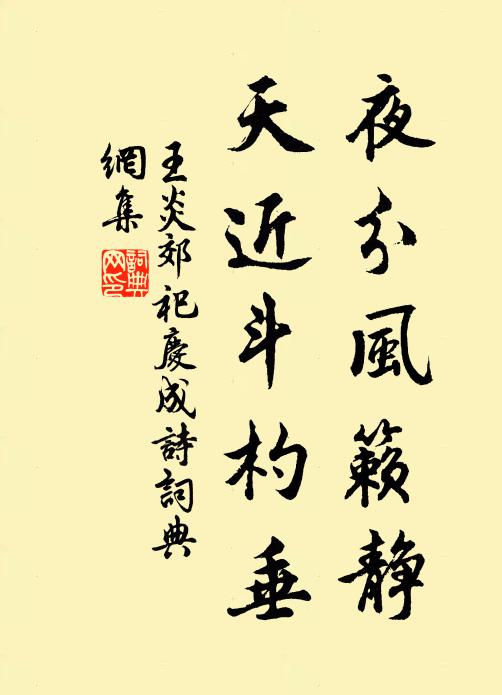 夜分風籟静
天近斗杓垂
王炎郊祀慶成詩詞典
網集
詞典
网印